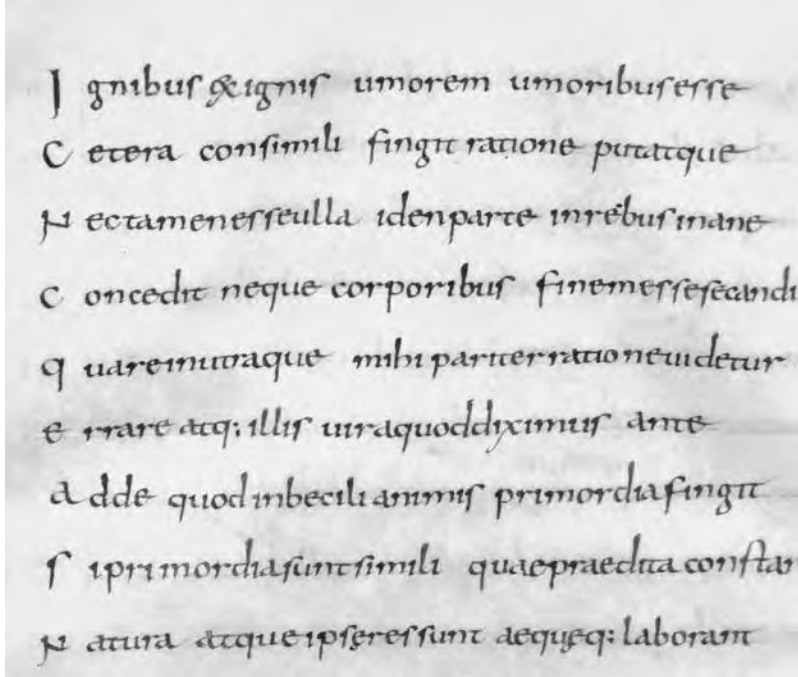 Ignibus ex ignis umorem umoribus esse
Cetera consimili fingit ratione putatque
Nec tamen esse ulla iden parte in rebus inane
Concedit neque corporibus finem esse secandi
quare in utraque mihi pariter ratione uidetur
errare atq: illis uira quod diximus ante
adde quod inbecili animis primordia fingit
si primordia sunt simili quae praedita constan
Natura atque ipsę res sunt aequęq: laborant